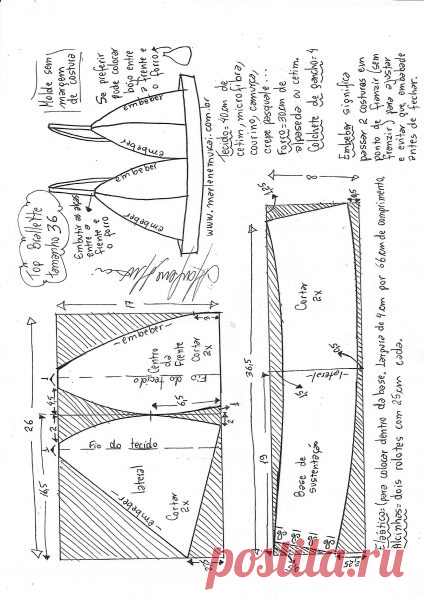 Top Brallette
tamanho 36
Molde sem
margem
de costura
Se preferir
pode colocar
bojo entre
a frente e
o forro
Embutir as alças
entre a
frente e
o forro
embeber
embeber
embeber
embeber
www.marlenemukai.com.br
Tecido=40cm de
cetim, microfibra,
courino, camurça,
crepe pasquale...
Forro=30cm de
alpaseda ou cetim.
Colchete de gancho=4
Embeber significa
passar 2 costuras em
ponto de franzir (sem
franzir), para ajustar
e evitar que embabade
antes de fechar.
26
14,5
2
4,5
17
embeber
Centro
da
frente
Cortar
2x
Fio do tecido
6,5
2
1
Fio do tecido
lateral
Cortar
2x
embeber
36,5
19
8
Cortar
2x
lateral
Base de
sustentação
2,25
Elástico=(para colocar dentro da base. Largura de 4cm por 66cm de comprimento.
Alcinhas= dois rolotes com 25cm cada.
postila.ru